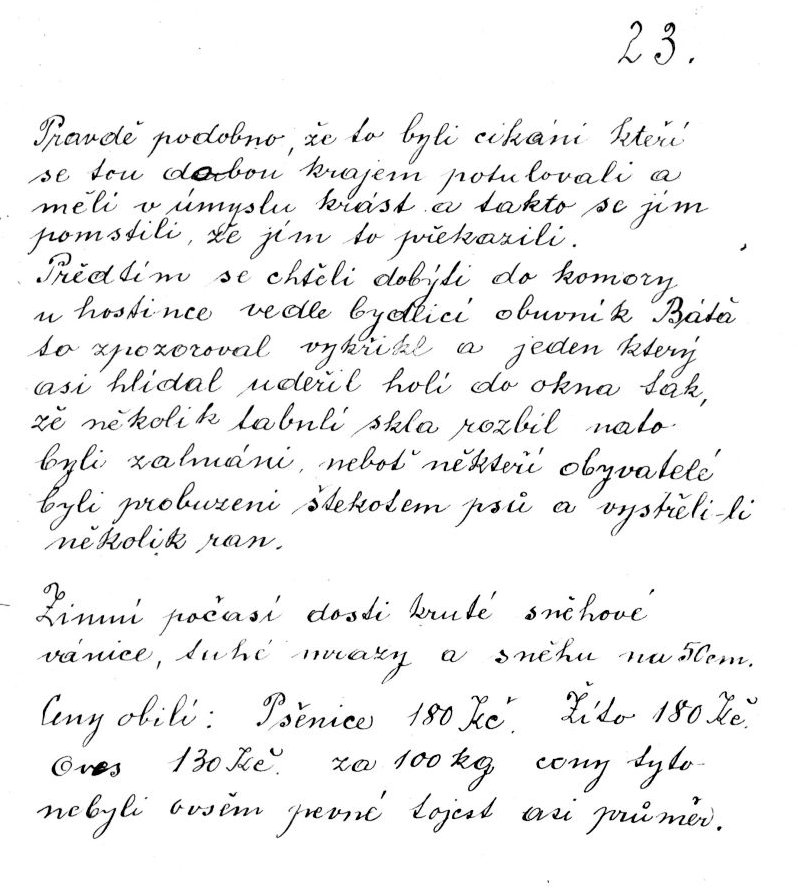 23.
Pravdě podobno, že to byli cikáni kteří
se tou dobou krajem potulovali a
měli v úmyslu krást a takto se jim
pomstili, že jim to překazili.
Předtím se chtěli dobýti do komory
u hostince vedle bydlící obuvník Bátá
to zpozoroval vykřikl a jeden který
asi hlídal udeřil holí do okna tak,
zě několik tabulí skla rozbil nato
byli zahnáni, neboť někteří obyvatelé
byli probuzeni štekotem psů a vystřěli-li
několik ran.
Zimní počasí dosti kruté sněhové
vánice, tuhé mrazy a sněhu na 50cm.
Ceny obilí: Pšenice 180 Kč. Žito 180 Kč.
Oves 130 Kč. za 100 kg ceny tyto
nebyli ovsěm pevné tojest asi průměr.